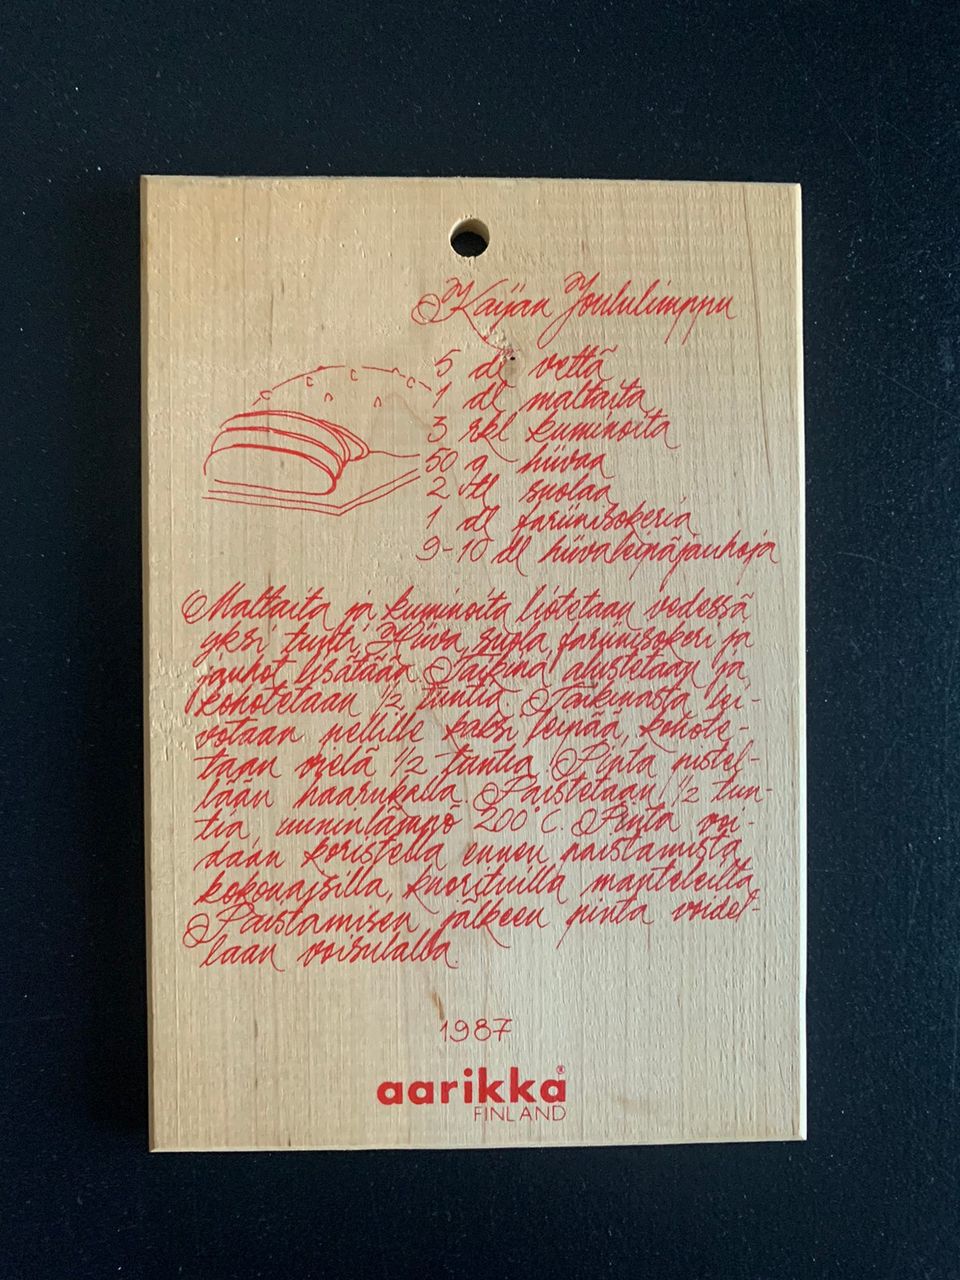 Kaijan Joululimppu
5 dl vettä
1 dl maltaita
3 rkl kuminoita
50 g hiivaa
2 tl suolaa
1 dl fariinisokeria
9-10 dl hiivaleipäjauhoja
Maltaita ja kuminoita liotetaan vedessä
yksi tunti. Hiiva, suola, fariinisokeri ja
jauhot lisätään. Taikina alustetaan ja
kohotetaan 1/2 tuntia. Taikinasta lei-
votaan pellille kaksi leipää, kohote-
taan vielä 1/2 tuntia. Pinta pistel-
lään haarukalla. Paistetaan 1/2 tun-
tia, uuninlämpö 200°C. Pinta voi-
daan koristella ennen paistamista
kokonaisilla, kuorituilla manteleilla.
Paistamisen jälkeen pinta voidel-
laan voisulalla.
1987
aarikka®
FINLAND